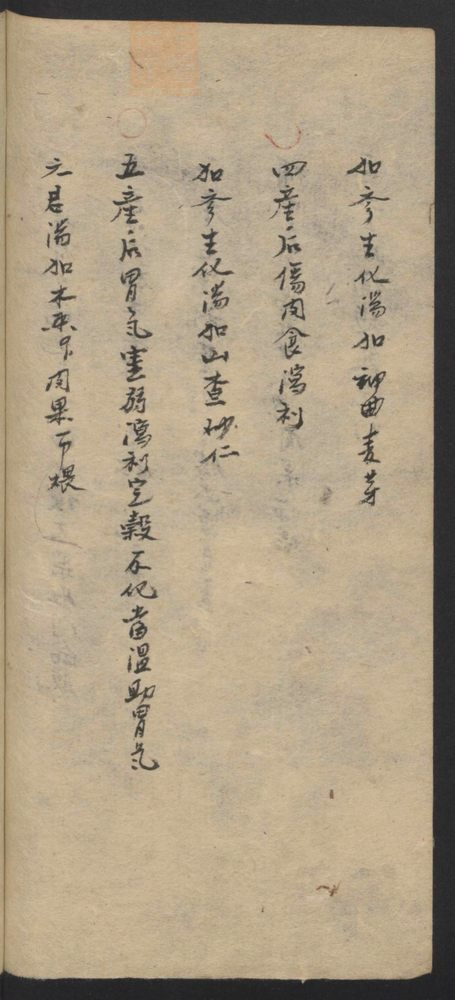 加参生化湯加神曲麦芽
四産后傷肉食瀉利
加参生化湯加山查砂仁
五産后胃气虚弱瀉利完穀不化當温助胃气
六君湯加木香 肉果一ケ煨